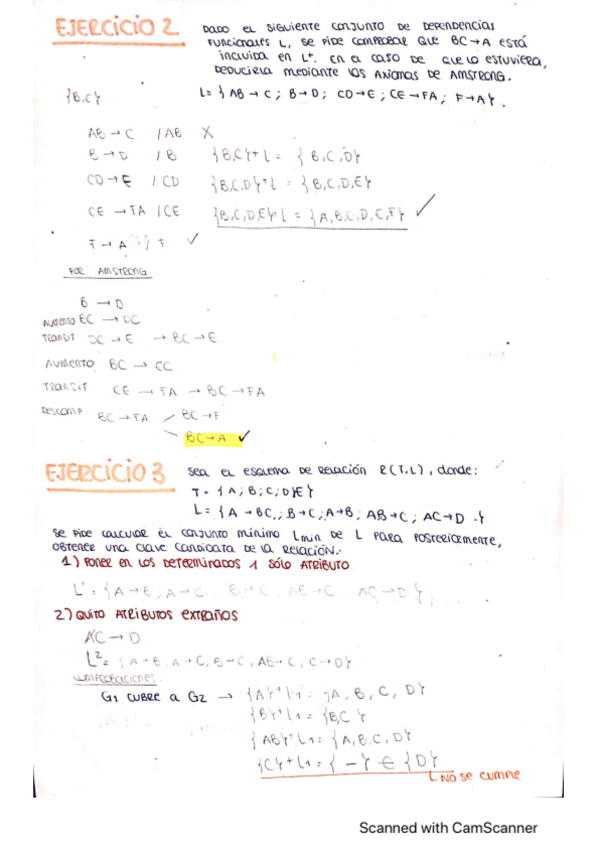 EJERCICIO 2 DADO EL SIGUIENTE CONJUNTO DE DEPENDENCIAS
FUNCIONALES L, SE PIDE COMPROBAR QUE BC→A ESTÁ
INCLUIDA EN L⁺. EN EL CASO DE QUE LO ESTUVIERA,
DEDUCIRLA MEDIANTE LOS AXIOMAS DE AMSTRONG.
{B,C} L = { AB → C ; B→D ; CD→E ; CE→FA ; F→A } .
AB → C / AB X
B → D / B {B,C}⁺L = { B,C,D}
CD → E / CD {B,C,D}⁺L = {B,C,D,E}
CE → FA / CE {B,C,D,E}⁺L = {A,B,C,D,E,F} ✓
F → A / F ✓
POR AMSTRONG
B → D
AUMENTO BC → DC
TRANSIT DC → E → BC → E
AUMENTO BC → CC
TRANSIT CE → FA → BC → FA
DESCOMP BC → FA BC → F
BC → A ✓
EJERCICIO 3 SEA EL ESQUEMA DE RELACIÓN R(T,L), DONDE:
T = { A ; B ; C ; D }
L = { A → BC ; B → C ; A → B ; AB → C ; AC → D }
SE PIDE CALCULAR EL CONJUNTO MÍNIMO Lmin DE L PARA POSTERIORMENTE,
OBTENER UNA CLAVE CANDIDATA DE LA RELACIÓN.
1) PONER EN LOS DETERMINADOS 1 SÓLO ATRIBUTO
L¹ = { A → B, A → C, B → C, AB → C AC → D }
2) QUITO ATRIBUTOS EXTRAÑOS
AC → D
L² = { A → B, A → C, B → C, AB → C, C → D }
COMPROBACIONES
G1 CUBRE A G2 → {A}⁺L1 = {A, B, C, D}
{B}⁺L1 = {B,C}
{AB}⁺L1 = {A, B, C, D}
{C}⁺L1 = { – } ∈ {D}
NO SE CUMPLE
Scanned with CamScanner